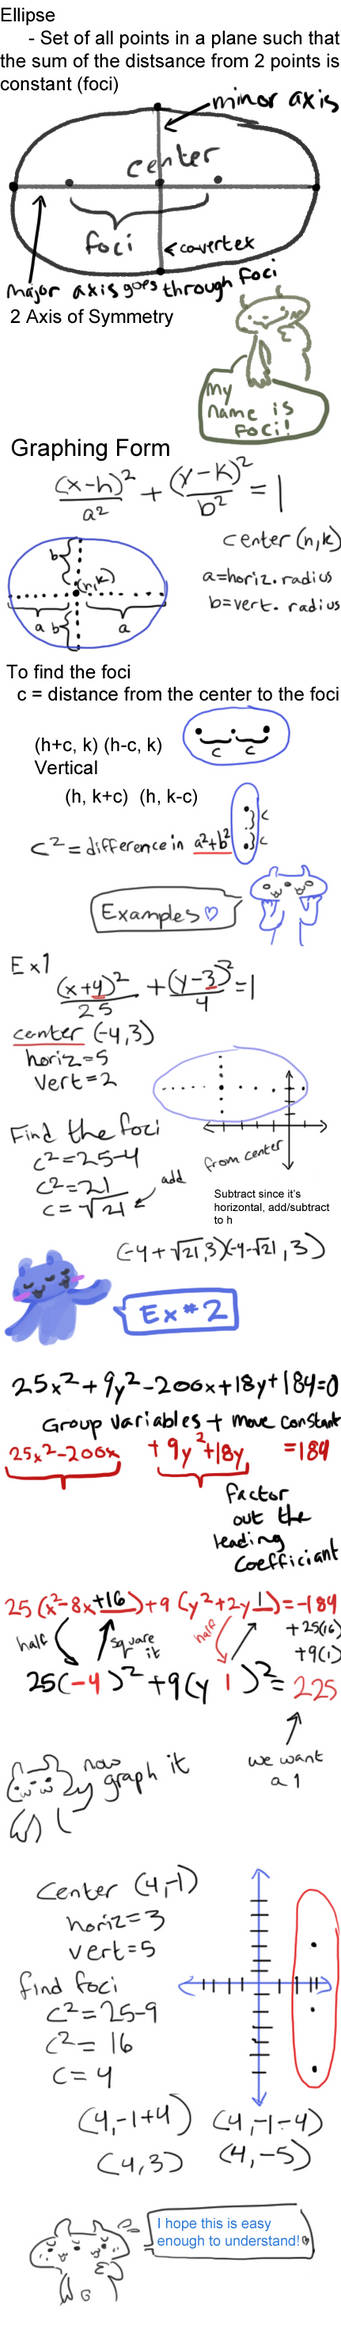 Ellipse
- Set of all points in a plane such that
the sum of the distsance from 2 points is
constant (foci)
minor axis
center
foci
covertex
major axis goes through foci
2 Axis of Symmetry
My
name is
foci!
Graphing Form
(x-h)²/a² + (y-k)²/b² = 1
center (h,k)
a=horiz. radius
b=vert. radius
b
(h,k)
a b a
To find the foci
c = distance from the center to the foci
(h+c, k) (h-c, k)
c c
Vertical
(h, k+c) (h, k-c)
c
c
c² = difference in a²+b²
Examples ♡
Ex1
(x+4)²/25 + (y-3)²/4 = 1
center (-4,3)
horiz=5
vert=2
Find the foci
c²=25-4
c²=21
c=√21
add
from center
Subtract since it's
horizontal, add/subtract
to h
(-4+√21,3)(-4-√21,3)
Ex #2
25x²+9y²-200x+18y+184=0
Group variables + move constant
25x²-200x +9y²+18y =184
factor
out the
leading
coefficiant
25(x²-8x+16)+9(y²+2y 1)=-184
+25(16)
+9(1)
half
square
it
half
25(-4)²+9(y 1)²=225
we want
a 1
now
graph it
center (4,-1)
horiz=3
vert=5
find foci
c²=25-9
c²=16
c=4
(4,-1+4) (4,-1-4)
(4,3) (4,-5)
I hope this is easy
enough to understand!